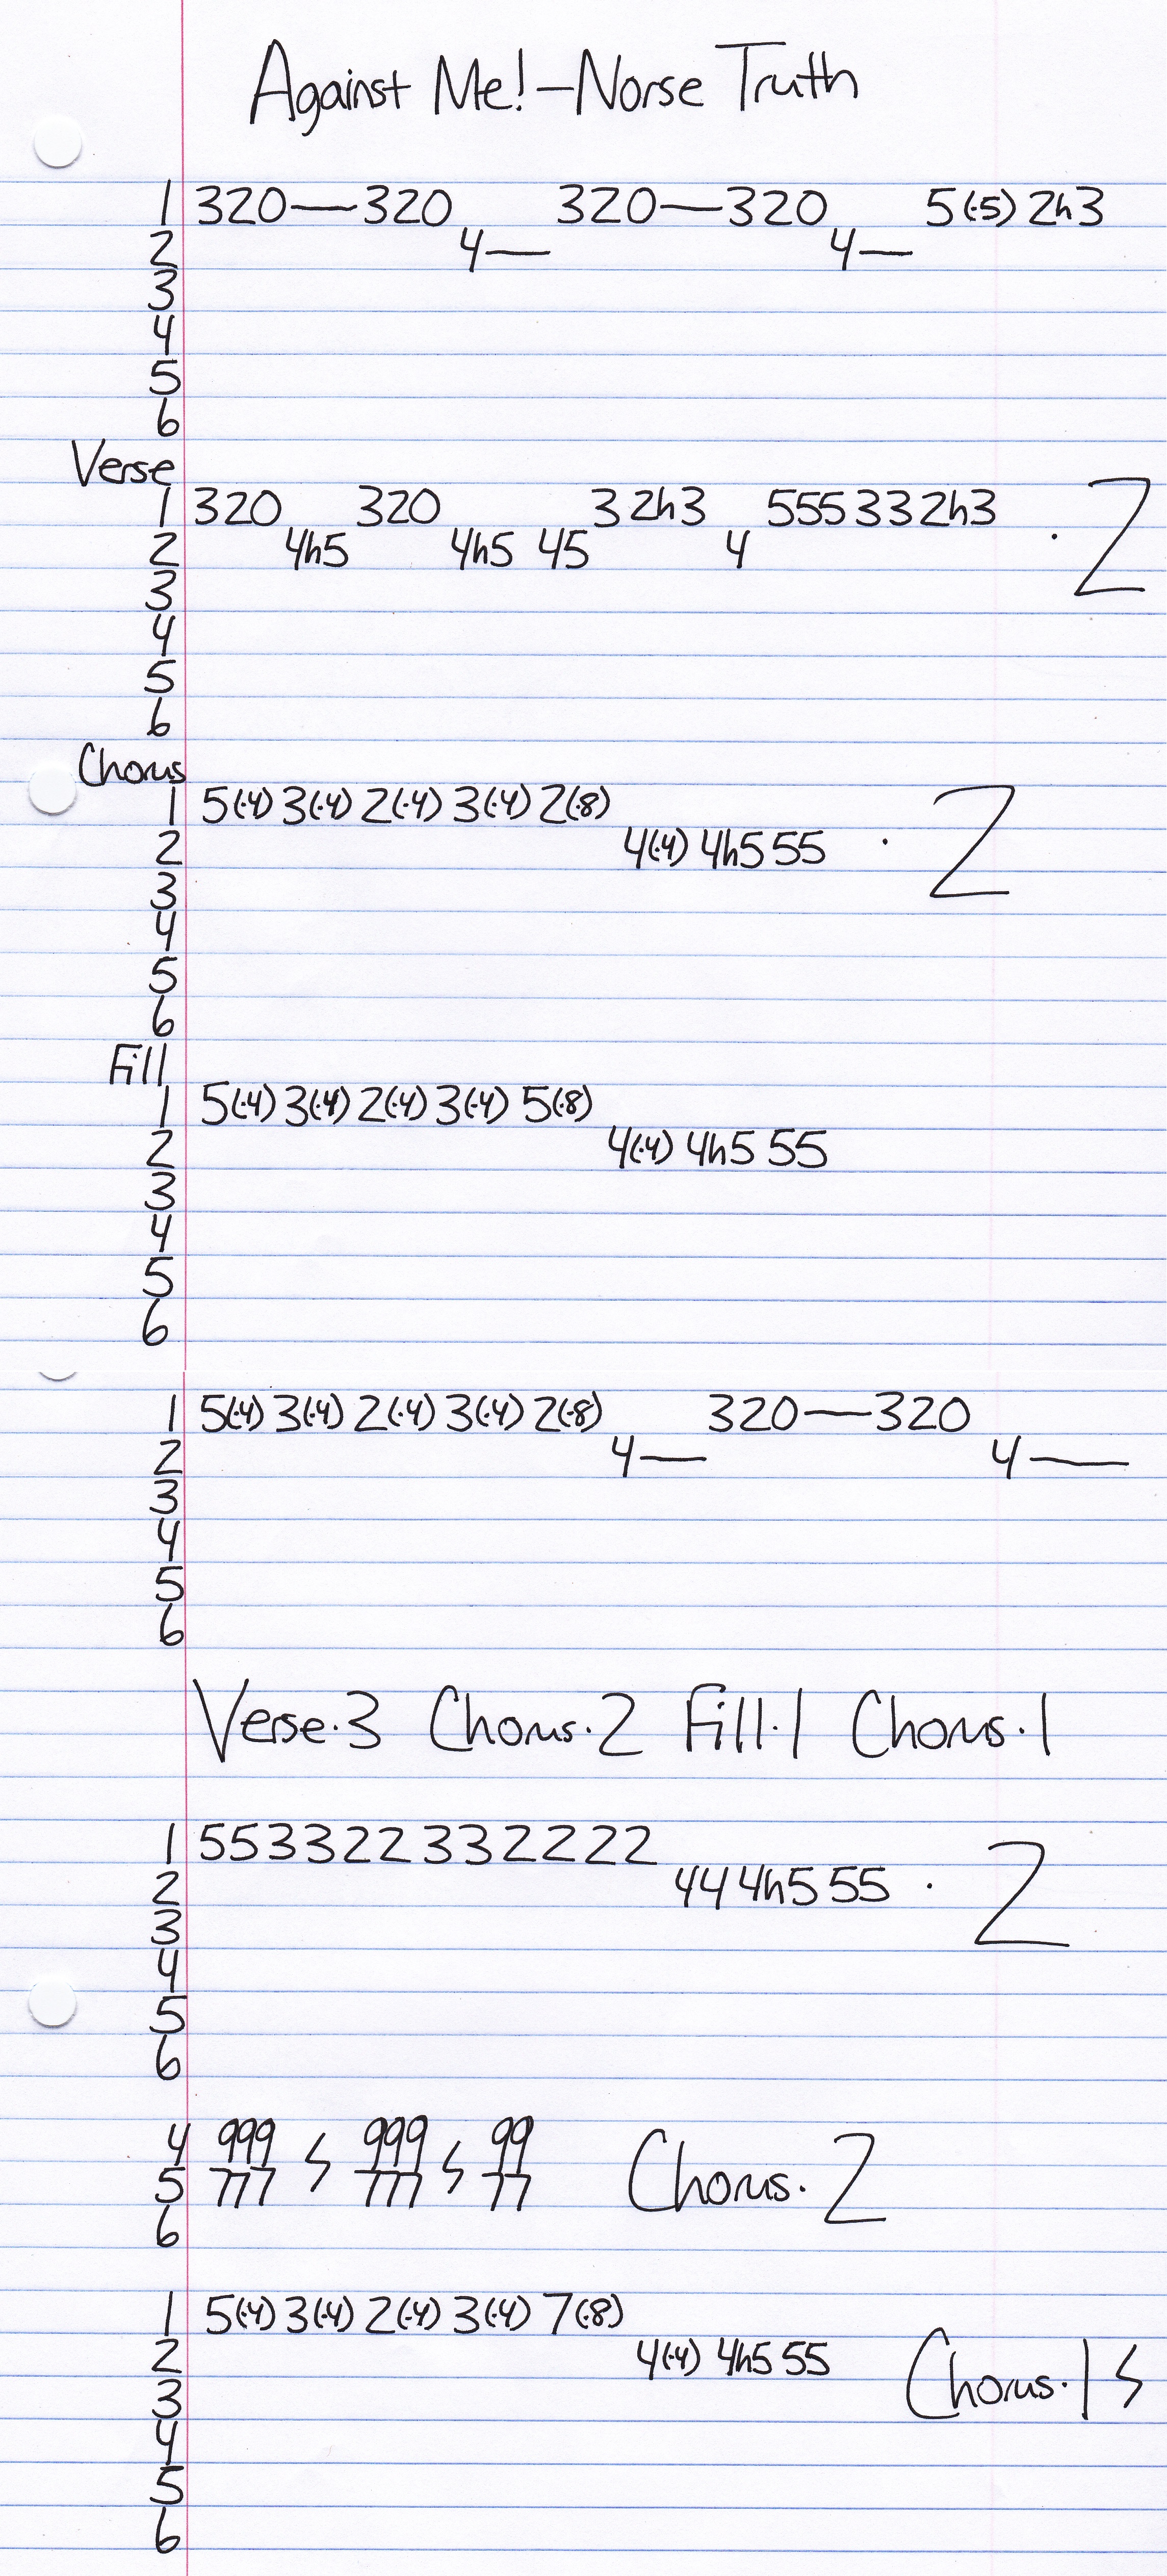 Against Me! - Norse Truth
1 320—320 320—320 5(·5) 2h3
2 4— 4—
3
4
5
6
Verse
1 320 320 3 2h3 555 33 2h3
2 4h5 4h5 45 4 · 2
3
4
5
6
Chorus
1 5(·4) 3(·4) 2(·4) 3(·4) 2(·8)
2 4(·4) 4h5 55 · 2
3
4
5
6
Fill
1 5(·4) 3(·4) 2(·4) 3(·4) 5(·8)
2 4(·4) 4h5 55
3
4
5
6
1 5(·4) 3(·4) 2(·4) 3(·4) 2(·8) 320—320
2 4— 4—
3
4
5
6
Verse·3 Chorus·2 Fill·1 Chorus·1
1 553322332222
2 44 4h5 55 · 2
3
4
5
6
4 999 999 99
5 777 777 77 Chorus·2
6
1 5(·4) 3(·4) 2(·4) 3(·4) 7(·8)
2 4(·4) 4h5 55 Chorus·1
3
4
5
6